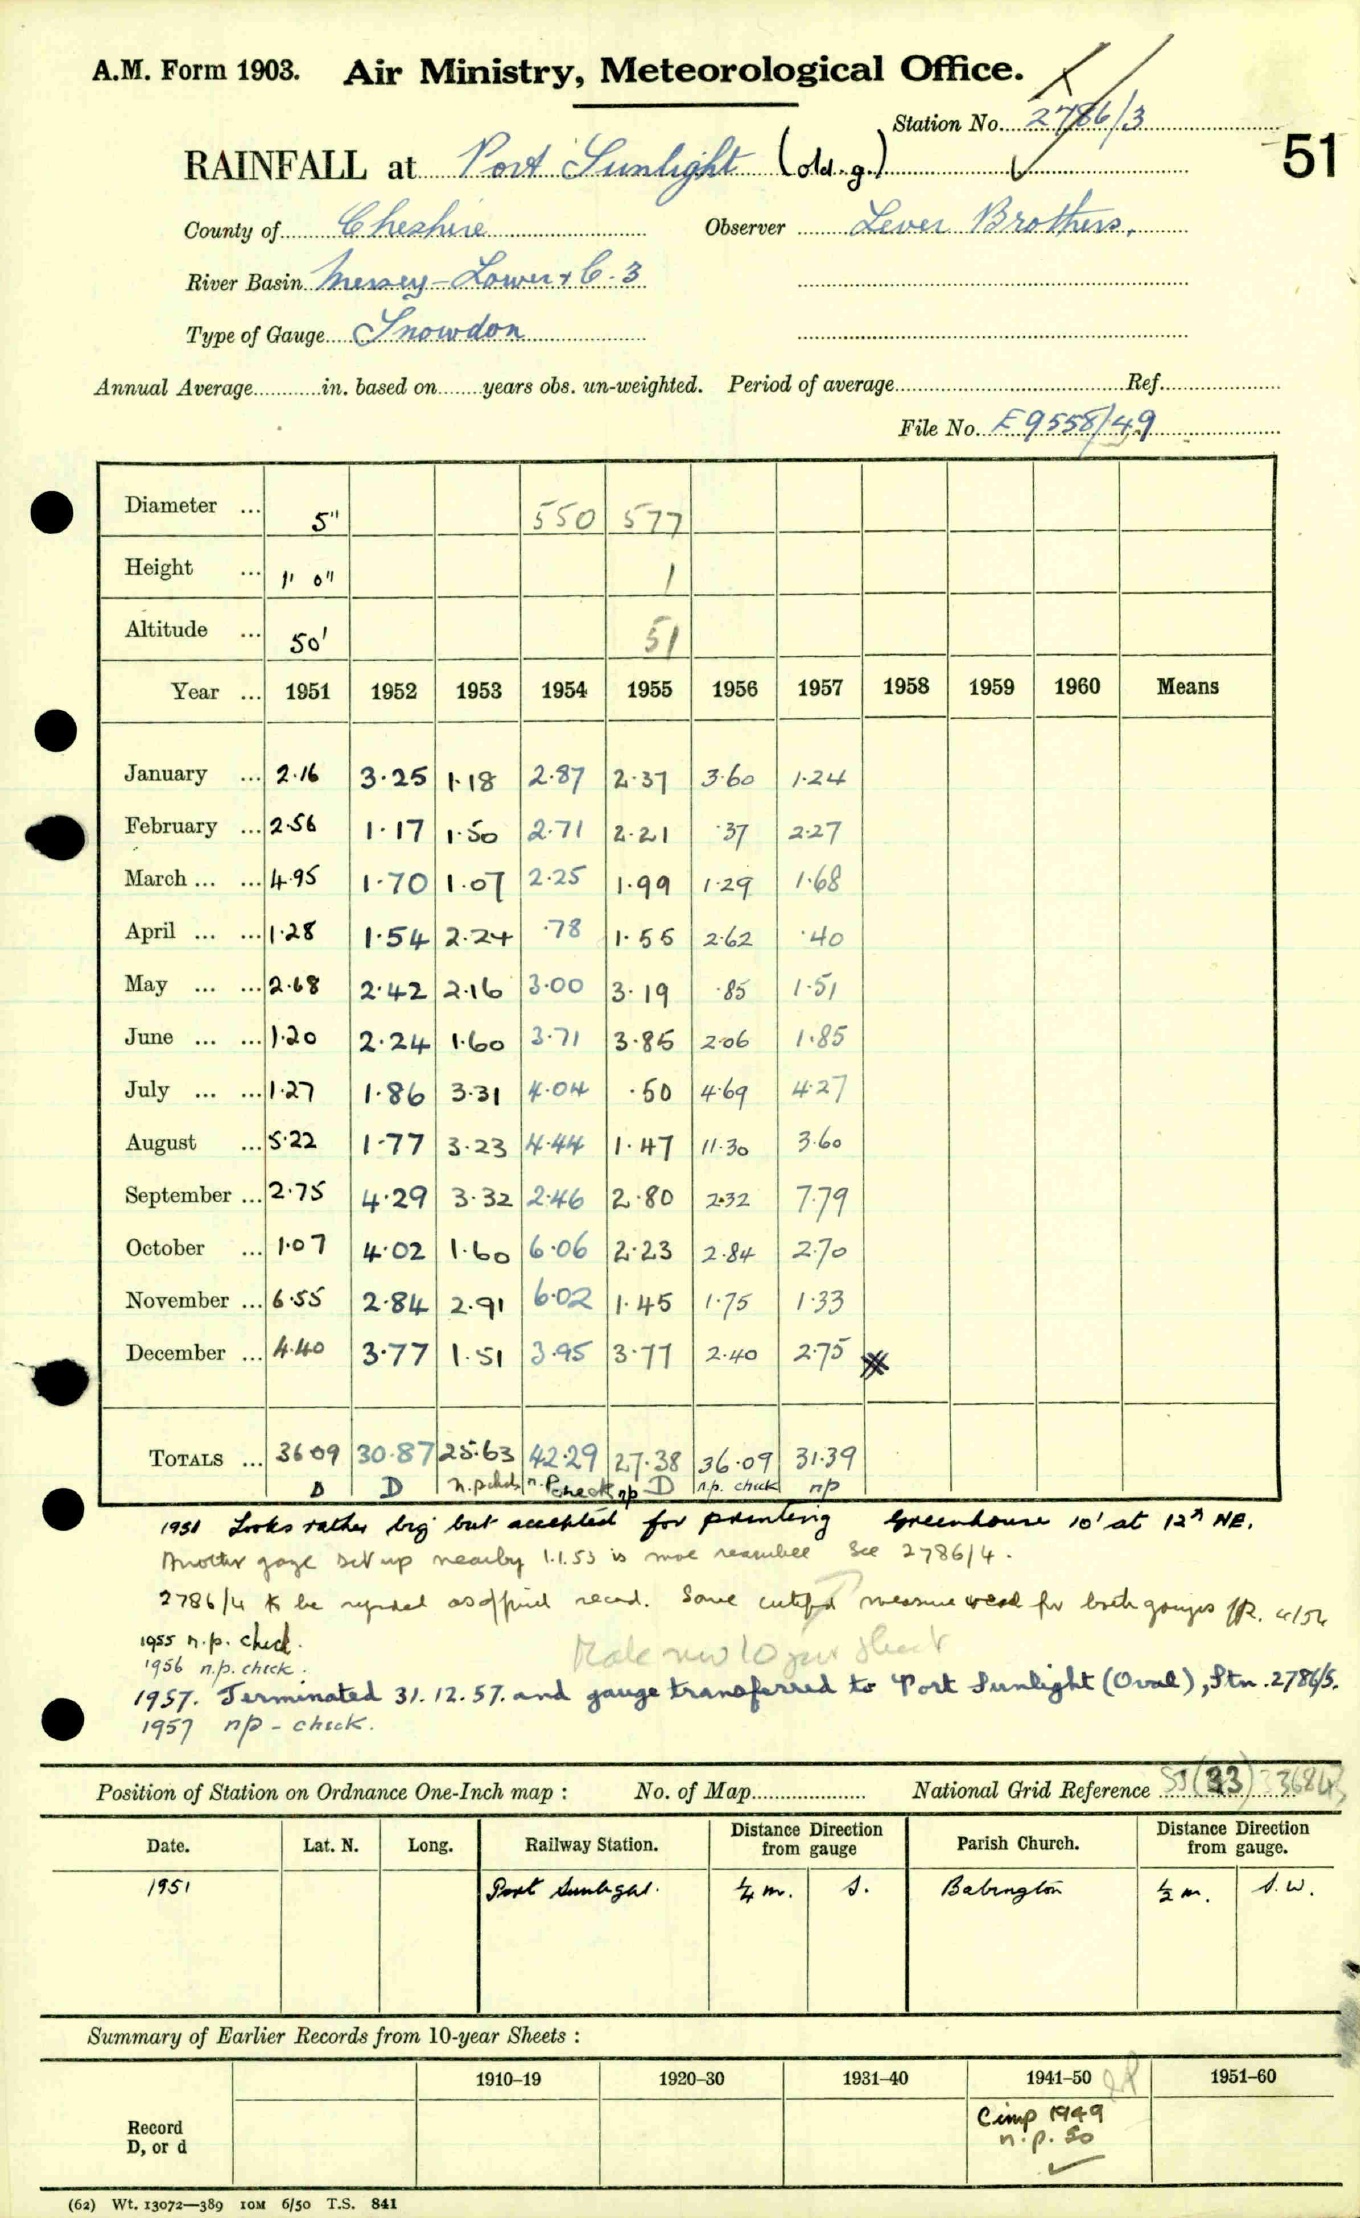 A.M. Form 1903. Air Ministry, Meteorological Office.
Station No. 2786/3
51
RAINFALL at Port Sunlight (old g.)
County of Cheshire Observer Lever Brothers.
River Basin Mersey - Lower + C.3
Type of Gauge Snowdon
Annual Average in. based on years obs. un-weighted. Period of average Ref.
File No. E9558/49
Diameter ... 5" 550 577
Height ... 1' 0" 1
Altitude ... 50' 51
Year ... 1951 1952 1953 1954 1955 1956 1957 1958 1959 1960 Means
January ... 2.16 3.25 1.18 2.87 2.37 3.60 1.24
February ... 2.56 1.17 1.50 2.71 2.21 .37 2.27
March ... ... 4.95 1.70 1.07 2.25 1.99 1.29 1.68
April ... ... 1.28 1.54 2.24 .78 1.55 2.62 .40
May ... ... 2.68 2.42 2.16 3.00 3.19 .85 1.51
June ... ... 1.20 2.24 1.60 3.71 3.85 2.06 1.85
July ... ... 1.27 1.86 3.31 4.04 .50 4.69 4.27
August ... 5.22 1.77 3.23 4.44 1.47 11.30 3.60
September ... 2.75 4.29 3.32 2.46 2.80 2.32 7.79
October ... 1.07 4.02 1.60 6.06 2.23 2.84 2.70
November ... 6.55 2.84 2.91 6.02 1.45 1.75 1.33
December ... 4.40 3.77 1.51 3.95 3.77 2.40 2.75
TOTALS ... 36.09 30.87 25.63 42.29 27.38 36.09 31.39
D D n.p. check n.p. check np D n.p. check np
1951 Looks rather big but accepted for printing Greenhouse 10' at 12ft NE.
Another gauge set up nearby 1.1.53 is more See 2786/4.
2786/4 to be regarded as official record. Same measure used for both gauges 4/54
1955 n.p. check.
Made new 10 year sheet
1956 n.p. check.
1957. Terminated 31.12.57. and gauge transferred to Port Sunlight (Oval), Stn. 2786/5.
1957 np - check.
Position of Station on Ordnance One-Inch map : No. of Map National Grid Reference SJ (33) 336843
Date. Lat. N. Long. Railway Station. Distance Direction from gauge Parish Church. Distance Direction from gauge.
1951 Port Sunlight. 1/4 m. S. Bebington 1/2 m. S.W.
Summary of Earlier Records from 10-year Sheets :
1910–19 1920–30 1931–40 1941–50 1951–60
Record
D, or d
1949
n.p. 50
(62) Wt. 13072—389 10M 6/50 T.S. 841